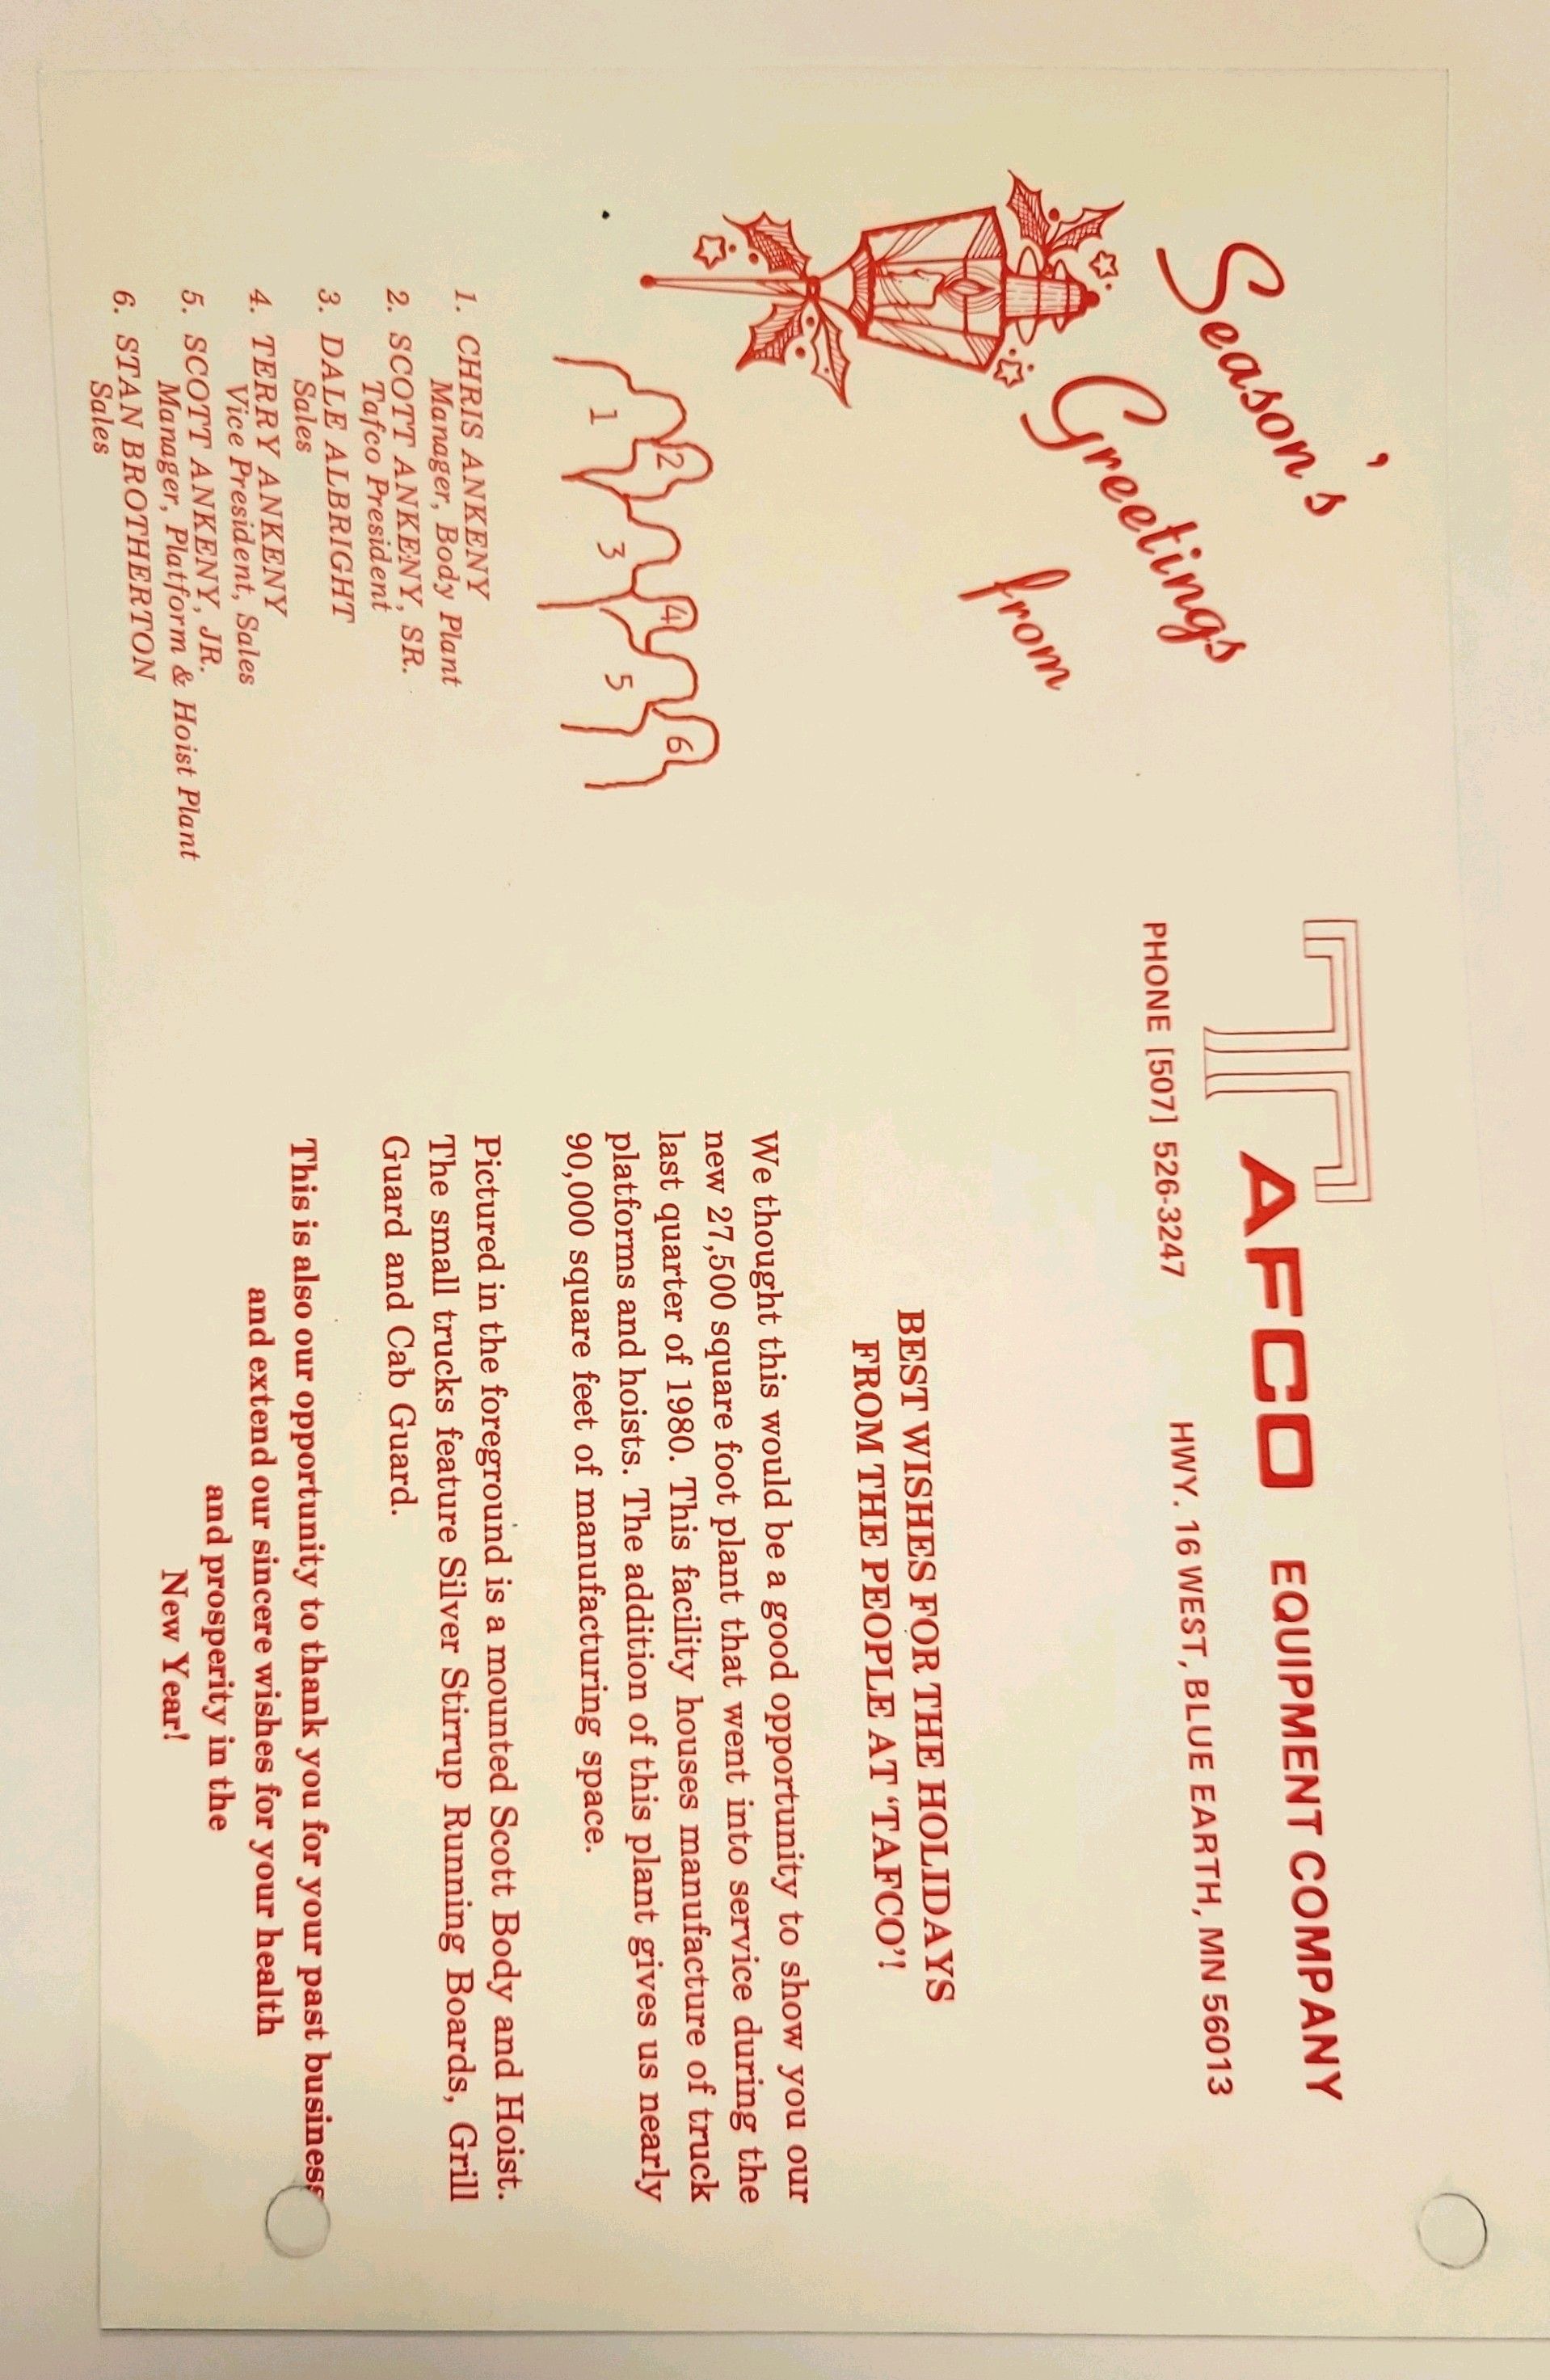 Season's
Greetings
from
TAFCO EQUIPMENT COMPANY
PHONE [507] 526-3247 HWY. 16 WEST, BLUE EARTH, MN 56013
BEST WISHES FOR THE HOLIDAYS
FROM THE PEOPLE AT 'TAFCO'!
We thought this would be a good opportunity to show you our
new 27,500 square foot plant that went into service during the
last quarter of 1980. This facility houses manufacture of truck
platforms and hoists. The addition of this plant gives us nearly
90,000 square feet of manufacturing space.
Pictured in the foreground is a mounted Scott Body and Hoist.
The small trucks feature Silver Stirrup Running Boards, Grill
Guard and Cab Guard.
This is also our opportunity to thank you for your past business
and extend our sincere wishes for your health
and prosperity in the
New Year!
1 2 3 4 5 6
1. CHRIS ANKENY
Manager, Body Plant
2. SCOTT ANKENY, SR.
Tafco President
3. DALE ALBRIGHT
Sales
4. TERRY ANKENY
Vice President, Sales
5. SCOTT ANKENY, JR.
Manager, Platform & Hoist Plant
6. STAN BROTHERTON
Sales